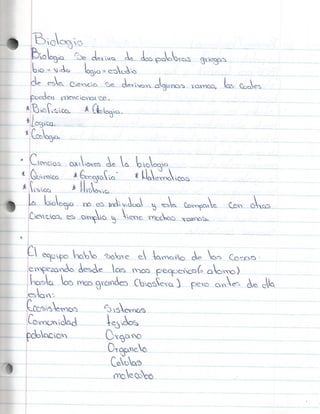 Biologia
Biologia Se deriva de dos palabras griegas
bio = vida logia = estudio
de esta ciencia se derivan algunas ramas, las cuales
pueden mencionarse.
* Biofisica * Citologia.
* logica.
* Ecologia.
• Ciencias auxiliares de la biologia
* Quimica * Geografia * Matematicas
* fisica * Historia
La biologia no es individual y esta comparte con otras
Ciencias, es amplia y tiene muchas ramas.
El equipo hablo sobre el tamaño de las cosas
empezando desde las mas pequeñas (atomo)
hasta las mas grandes (biosfera) pero antes de ella
estan:
Ecosistemas Sistemas
Comunidad tejidos
poblacion Organo
Organelo
Celulas
moleculas